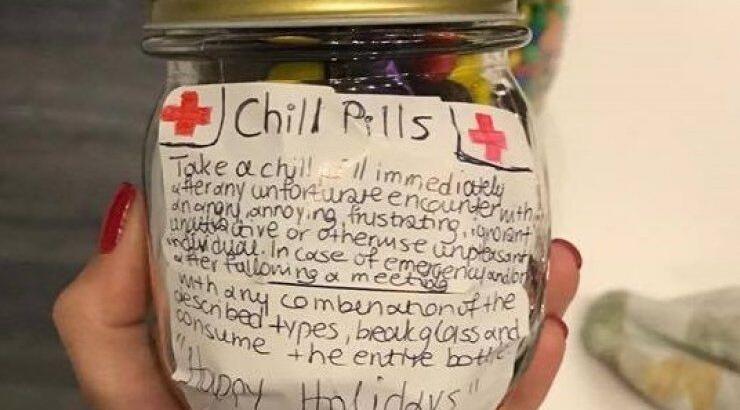 Chill Pills
Take a chill pill immediately
after any unfortunate encounter with
an angry, annoying, frustrating, ignorant
unattractive or otherwise unpleasant
individual. In case of emergency and/or
after following a meeting
with any combination of the
described types, break glass and
consume the entire bottle
"Happy Holidays"